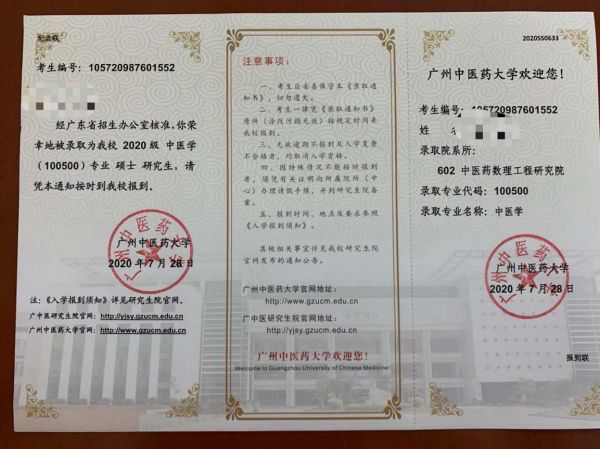 纪念联
考生编号：105720987601552
经广东省招生办公室核准，你荣
幸地被录取为我校 2020 级 中医学
(100500) 专业 硕士 研究生，请
凭本通知按时到我校报到。
广州中医药大学
2020 年 7 月 28 日
广州中医药大学
注：《入学报到须知》详见研究生院官网。
广中医研究生院官网：http://yjsy.gzucm.edu.cn
广州中医药大学官网：http://www.gzucm.edu.cn
注意事项：
一、考生应妥善保管本《录取通
知书》，切勿遗失。
二、考生一律凭《录取通知书》
原件（涂改污损无效）按规定时间来
我校报到。
三、无故逾期不报到及入学复查
不合格者，均取消入学资格。
四、因特殊情况不能按时报到
者，须凭有关证明向所属院所（中
心）办理请假手续，并到研究生院备
案。
五、报到时间、地点及要求参照
《入学报到须知》。
其他相关事宜详见我校研究生院
官网发布的通知公告。
广州中医药大学官网地址：
http://www.gzucm.edu.cn
广中医研究生院官网地址：
http://yjsy.gzucm.edu.cn
广州中医药大学欢迎您！
Welcome to Guangzhou University of Chinese Medicine!
2020SS0633
广州中医药大学欢迎您！
考生编号：105720987601552
姓
录取院系所：
602 中医药数理工程研究院
录取专业代码：100500
录取专业名称：中医学
广州中医药大学
2020 年 7 月 28 日
广州中医药大学
报到联